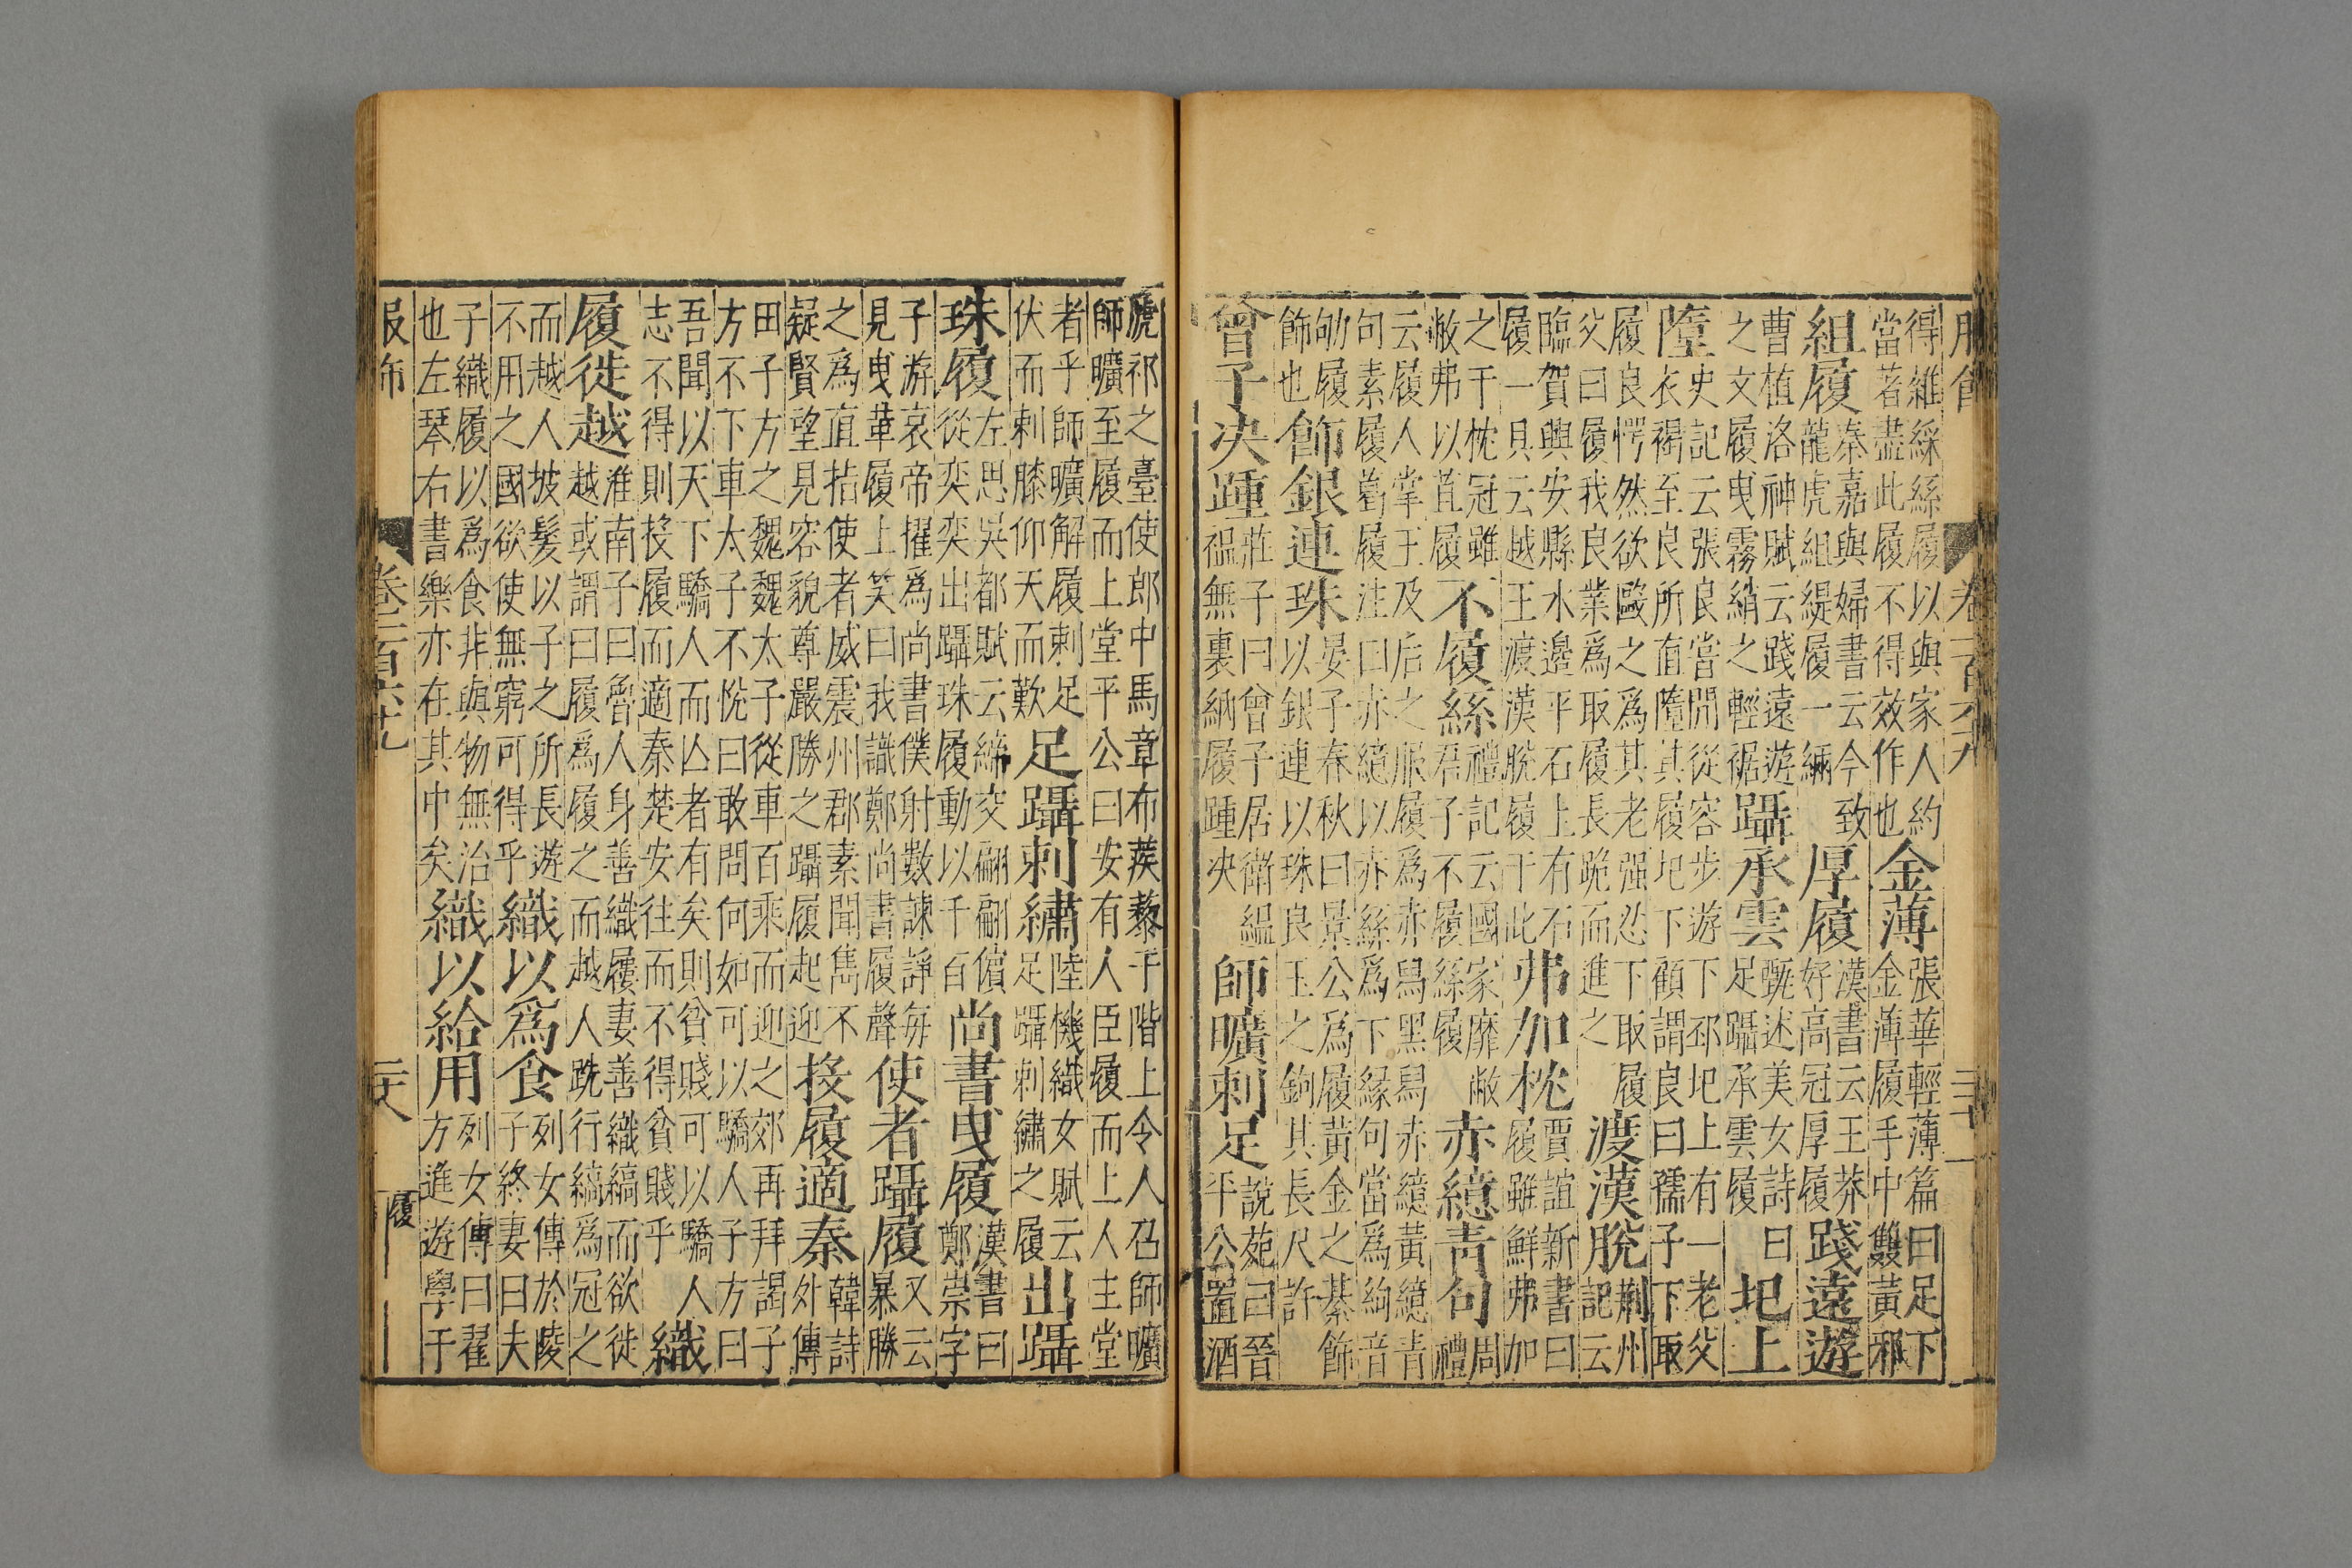 得雜綵絲履以與家人約
當著盡此履不得效作也
金薄
張華輕薄篇曰足下
金薄履手中雙黃邪
組履
秦嘉與婦書云今致
龍虎組緹履一緉
厚履
漢書云王莽
好高冠厚履
踐遠遊
曹植洛神賦云踐遠遊
之文履曳霧綃之輕裾
躡承雲
甄述美女詩曰
足躡承雲履
圯上
墮
史記云張良嘗閒從容步遊下邳圯上有一老父
衣褐至良所直墮其履圯下顧謂良曰孺子下取
履良愕然欲毆之為其老强忍下取履
父曰履我良業為取履長跪而進之
渡漢脫
荆州
記云
臨賀興安縣水邊平石上有石
履一具云越王渡漢脫履于此
弗加枕
賈誼新書曰
履雖鮮弗加
之于枕冠雖
敝弗以苴履
不履絲
禮記云國家靡敝
君子不履絲履
赤繶青句
周
禮
云履人掌王及后之服履為赤舄黑舄赤繶黃繶青
句素履葛履注曰赤繶以赤絲為下緣句當為絇音
劬履
飾也
飾銀連珠
晏子春秋曰景公為履黃金之綦飾
以銀連以珠良玉之鉤其長尺許
曾子決踵
莊子曰曾子居衛緼
褞無裏納履踵决
師曠刺足
說苑曰晉
平公置酒
虒祁之臺使郎中馬章布蒺藜于階上令人召師曠
師曠至履而上堂平公曰安有人臣履而上人主堂
者乎師曠解履刺足
伏而刺膝仰天而歎
足躡刺繡
陸機織女賦云
足躡刺繡之履
出躡
珠履
左思吳都賦云締交翩翩儐
從奕奕出躡珠履動以千百
尚書曳履
漢書曰
鄭崇字
子游哀帝擢為尚書僕射數諫諍每
見曳革履上笑曰我識鄭尚書履聲
使者躡履
又云
暴勝
之為直指使者威震州郡素聞雋不
疑賢望見容貌尊嚴勝之躡履起迎
接履適秦
韓詩
外傳
田子方之魏魏太子從車百乘而迎之郊再拜謁子
方不下車太子不悅曰敢問何如可以驕人子方曰
吾聞以天下驕人而亾者有矣則貧賤可以驕人
志不得則接履而適秦楚安往而不得貧賤乎
織
履徙越
淮南子曰魯人身善織屨妻善織縞而欲徙
越或謂曰履為履之而越人跣行縞為冠之
而越人坡髮以子之所長遊
不用之國欲使無窮可得乎
織以為食
列女傳於陵
子終妻曰夫
子織履以為食非與物無治
也左琴右書樂亦在其中矣
織以給用
列女傳曰翟
方進遊學于
履